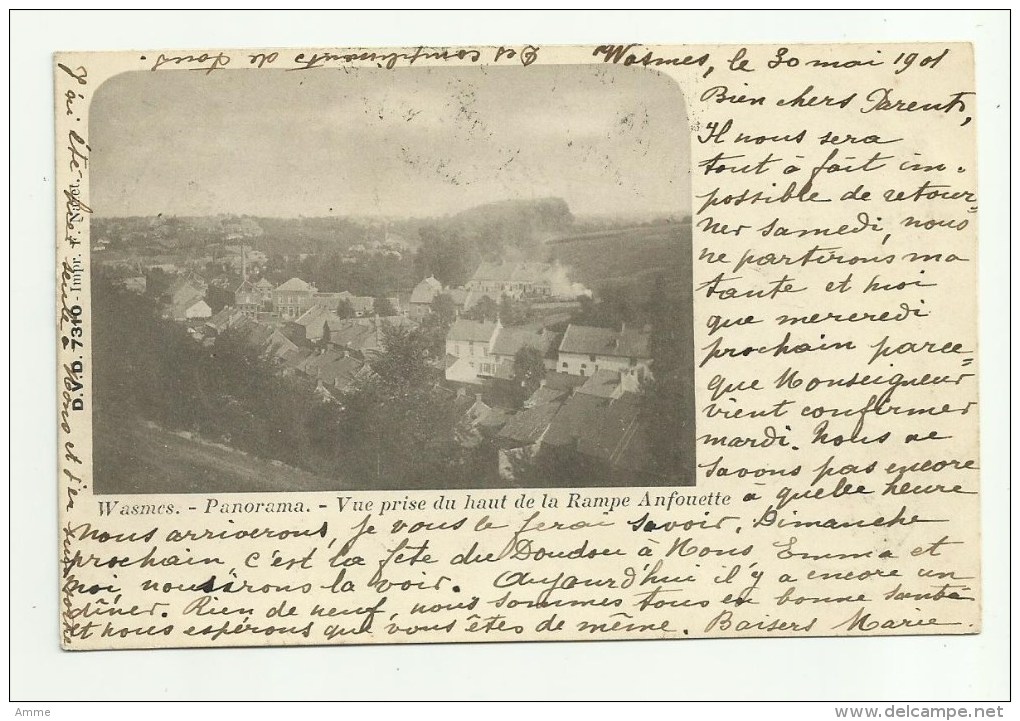 Wasmes, le 30 mai 1901
Bien chers Parents,
Il nous sera
tout à fait im-
possible de retour-
ner samedi, nous
ne partirons ma
tante et moi
que mercredi
prochain parce-
que Monseigneur
vient confirmer
mardi. Nous ne
savons pas encore
à quelle heure
nous arriverons, je vous le ferai savoir. Dimanche
prochain c'est la fête du Doudou à Mons, Emma et
moi, nous irons la voir. Aujourd'hui il y a encore un
dîner. Rien de neuf, nous sommes tous en bonne santé
et nous espérons que vous êtes de même. Baisers Marie.
J'ai été hier seule à Mons et j'en
Des compliments de tous.
Wasmes. - Panorama. - Vue prise du haut de la Rampe Anfouette
D.V.D. 7310 - Impr.
Amme
http://www.delcampe.net